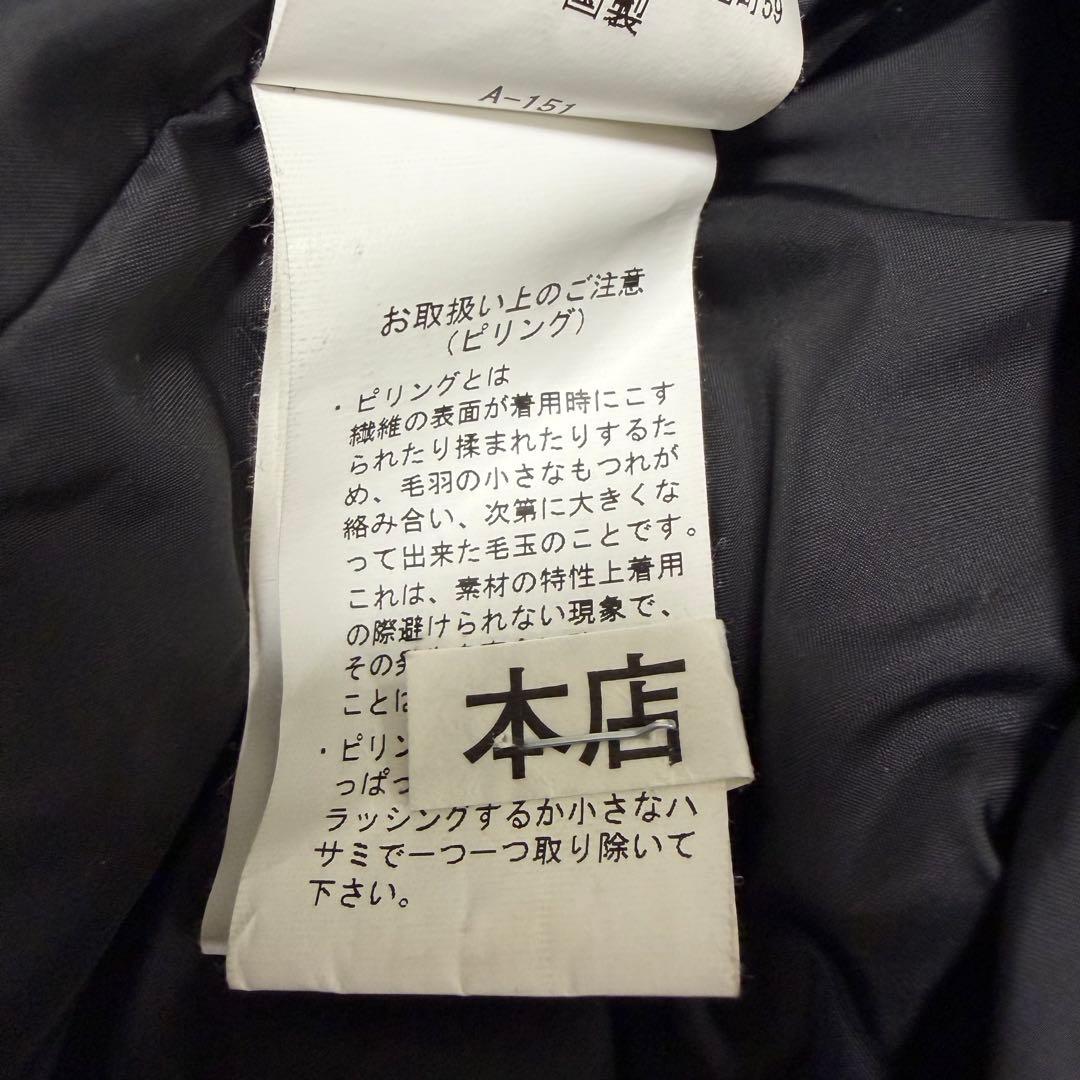 製
59
A-151
お取扱い上のご注意
(ピリング)
・ピリングとは
繊維の表面が着用時にこす
られたり揉まれたりするた
め、毛羽の小さなもつれが
絡み合い、次第に大きくな
って出来た毛玉のことです。
これは、素材の特性上着用
の際避けられない現象で、
その
ことは
本店
・ピリン
っぱ
ラッシングするか小さなハ
サミで一つ一つ取り除いて
下さい。